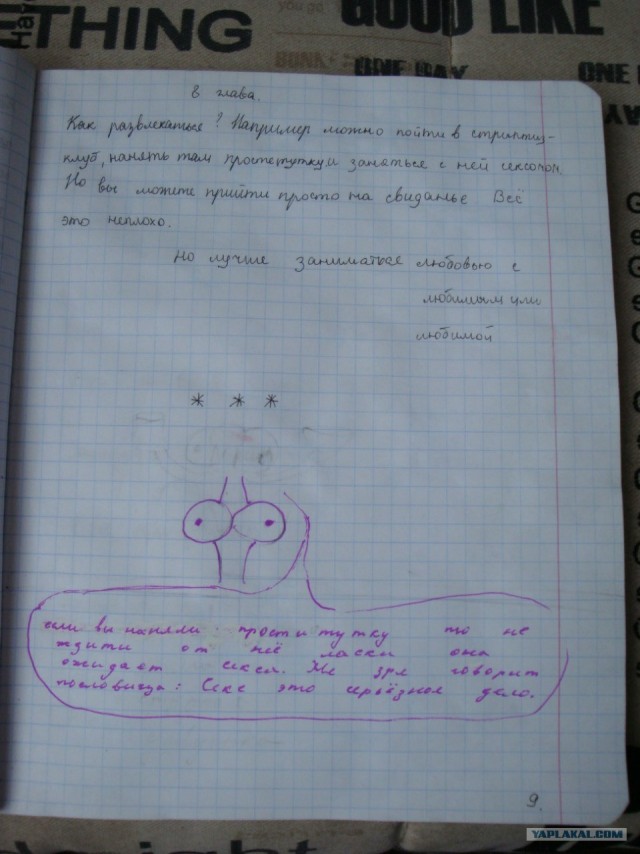 THING
you go.
GOOD LIKE
ONE DAY
ONE
8 глава.
Как развлекаться? Например можно пойти в стриптиз-
клуб, нанять там простетутку и заняться с ней сексом.
Но вы можете прийти просто на свиданье Всё
это неплохо.
Но лучше заниматься любовью с
любимым или
любимой
* * *
если вы наняли проститутку то не
ждити от неё ласки она
ожидает секса. Не зря говорит
пословица: Секс это серьёзное дело.
9.
YAPLAKAL.COM